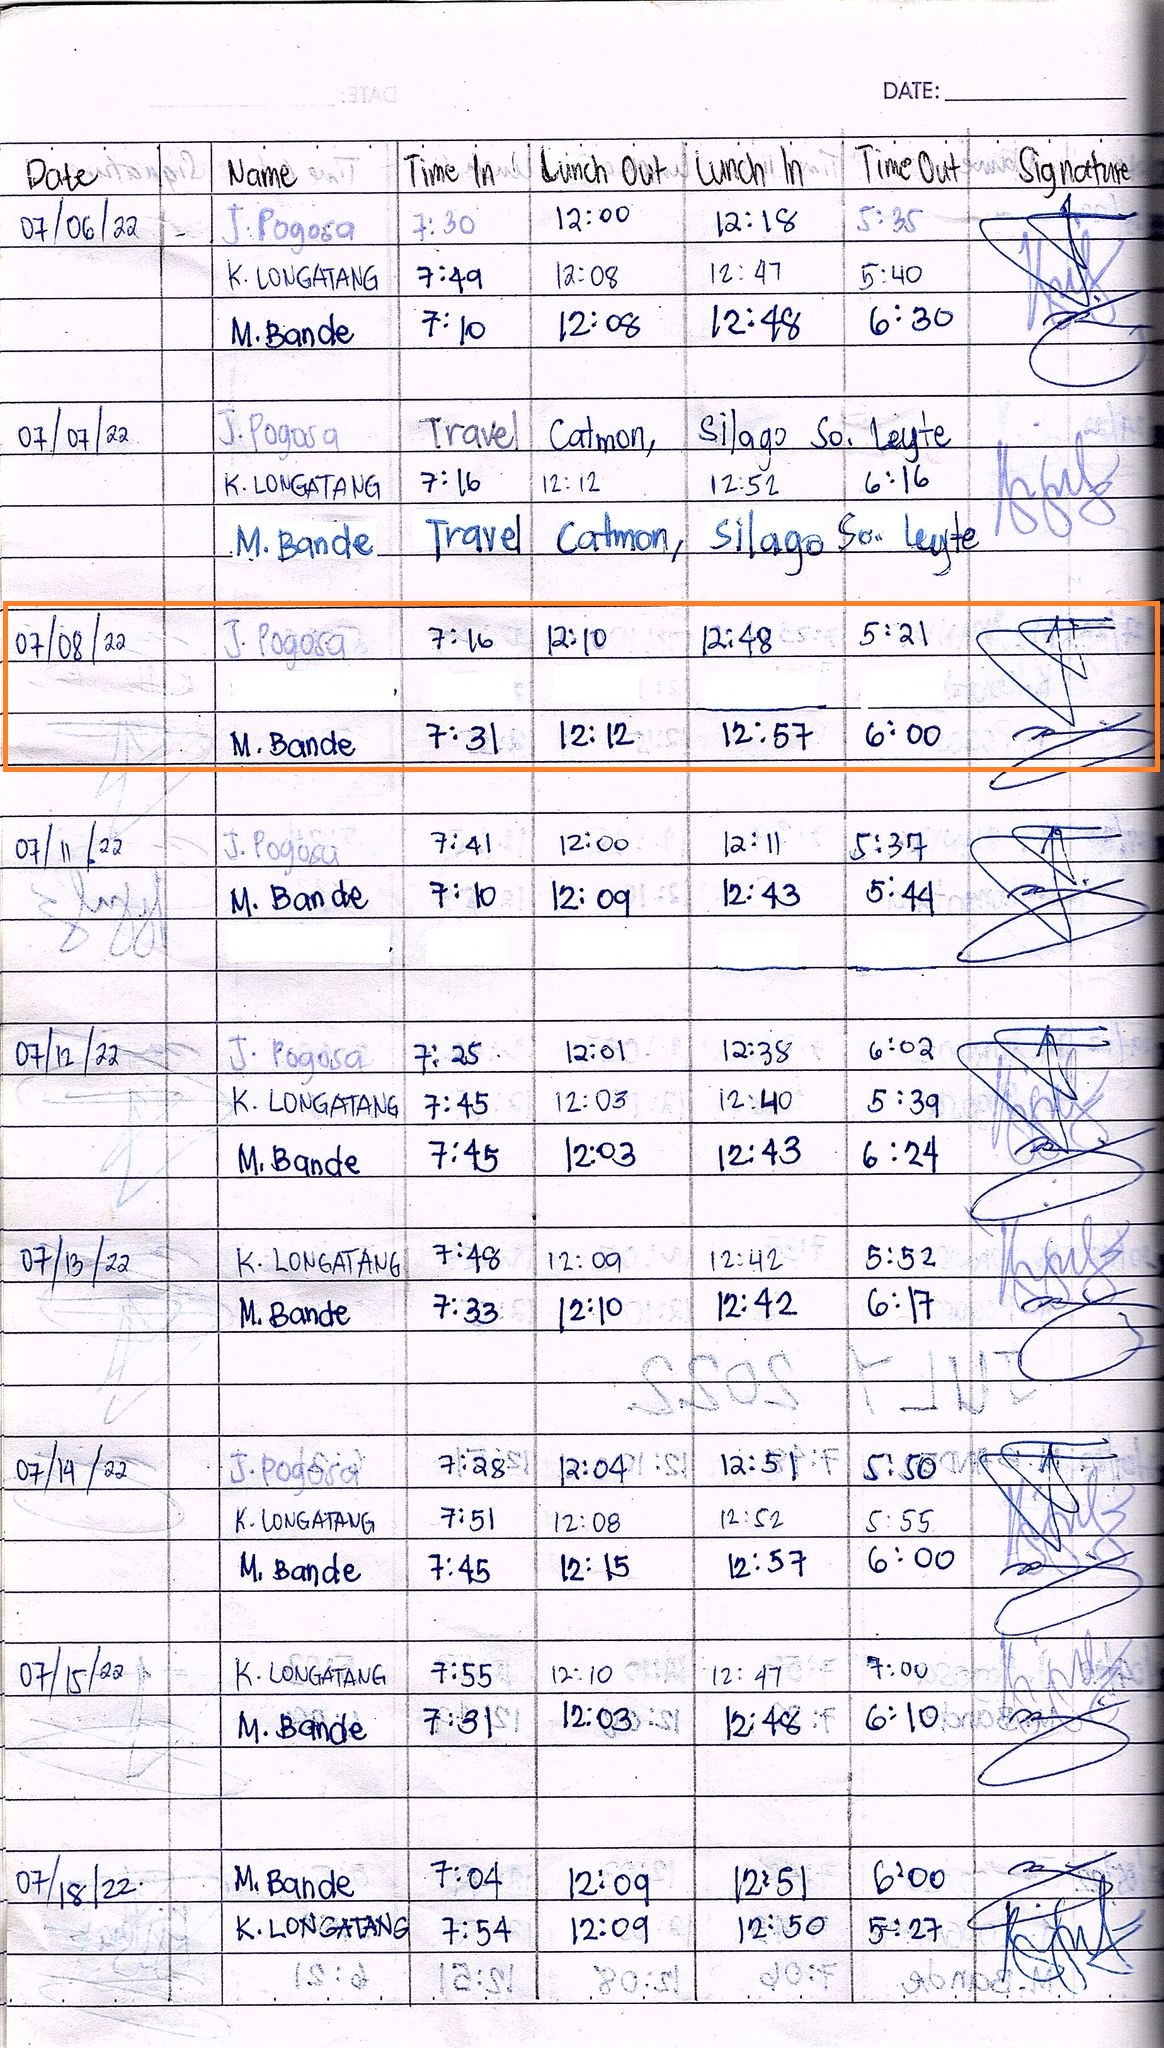 DATE:
Date Name Time In Lunch Out Lunch In Time Out Signature
07/06/22 J. Pogosa 7:30 12:00 12:18 5:35
K. LONGATANG 7:49 12:08 12:47 5:40
M. Bande 7:10 12:08 12:48 6:30
07/07/22 J. Pogosa Travel Catmon, Silago So. Leyte
K. LONGATANG 7:16 12:12 12:52 6:16
M. Bande Travel Catmon, Silago So. Leyte
07/08/22 J. Pogosa 7:16 12:10 12:48 5:21
M. Bande 7:31 12:12 12:57 6:00
07/11/22 J. Pogosa 7:41 12:00 12:11 5:37
M. Bande 7:10 12:09 12:43 5:44
07/12/22 J. Pogosa 7:25 12:01 12:38 6:02
K. LONGATANG 7:45 12:03 12:40 5:39
M. Bande 7:45 12:03 12:43 6:24
07/13/22 K. LONGATANG 7:48 12:09 12:42 5:52
M. Bande 7:33 12:10 12:42 6:17
07/14/22 J. Pogosa 7:28 12:04 12:51 5:50
K. LONGATANG 7:51 12:08 12:52 5:55
M. Bande 7:45 12:15 12:57 6:00
07/15/22 K. LONGATANG 7:55 12:10 12:47 7:00
M. Bande 7:31 12:03 12:48 6:10
07/18/22 M. Bande 7:04 12:09 12:51 6:00
K. LONGATANG 7:54 12:09 12:50 5:27